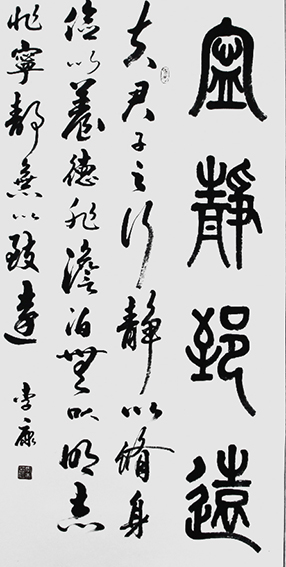 寧靜致遠
夫君子之行靜以脩身
儉以養德非澹泊無以明志
非寧靜無以致遠
李康